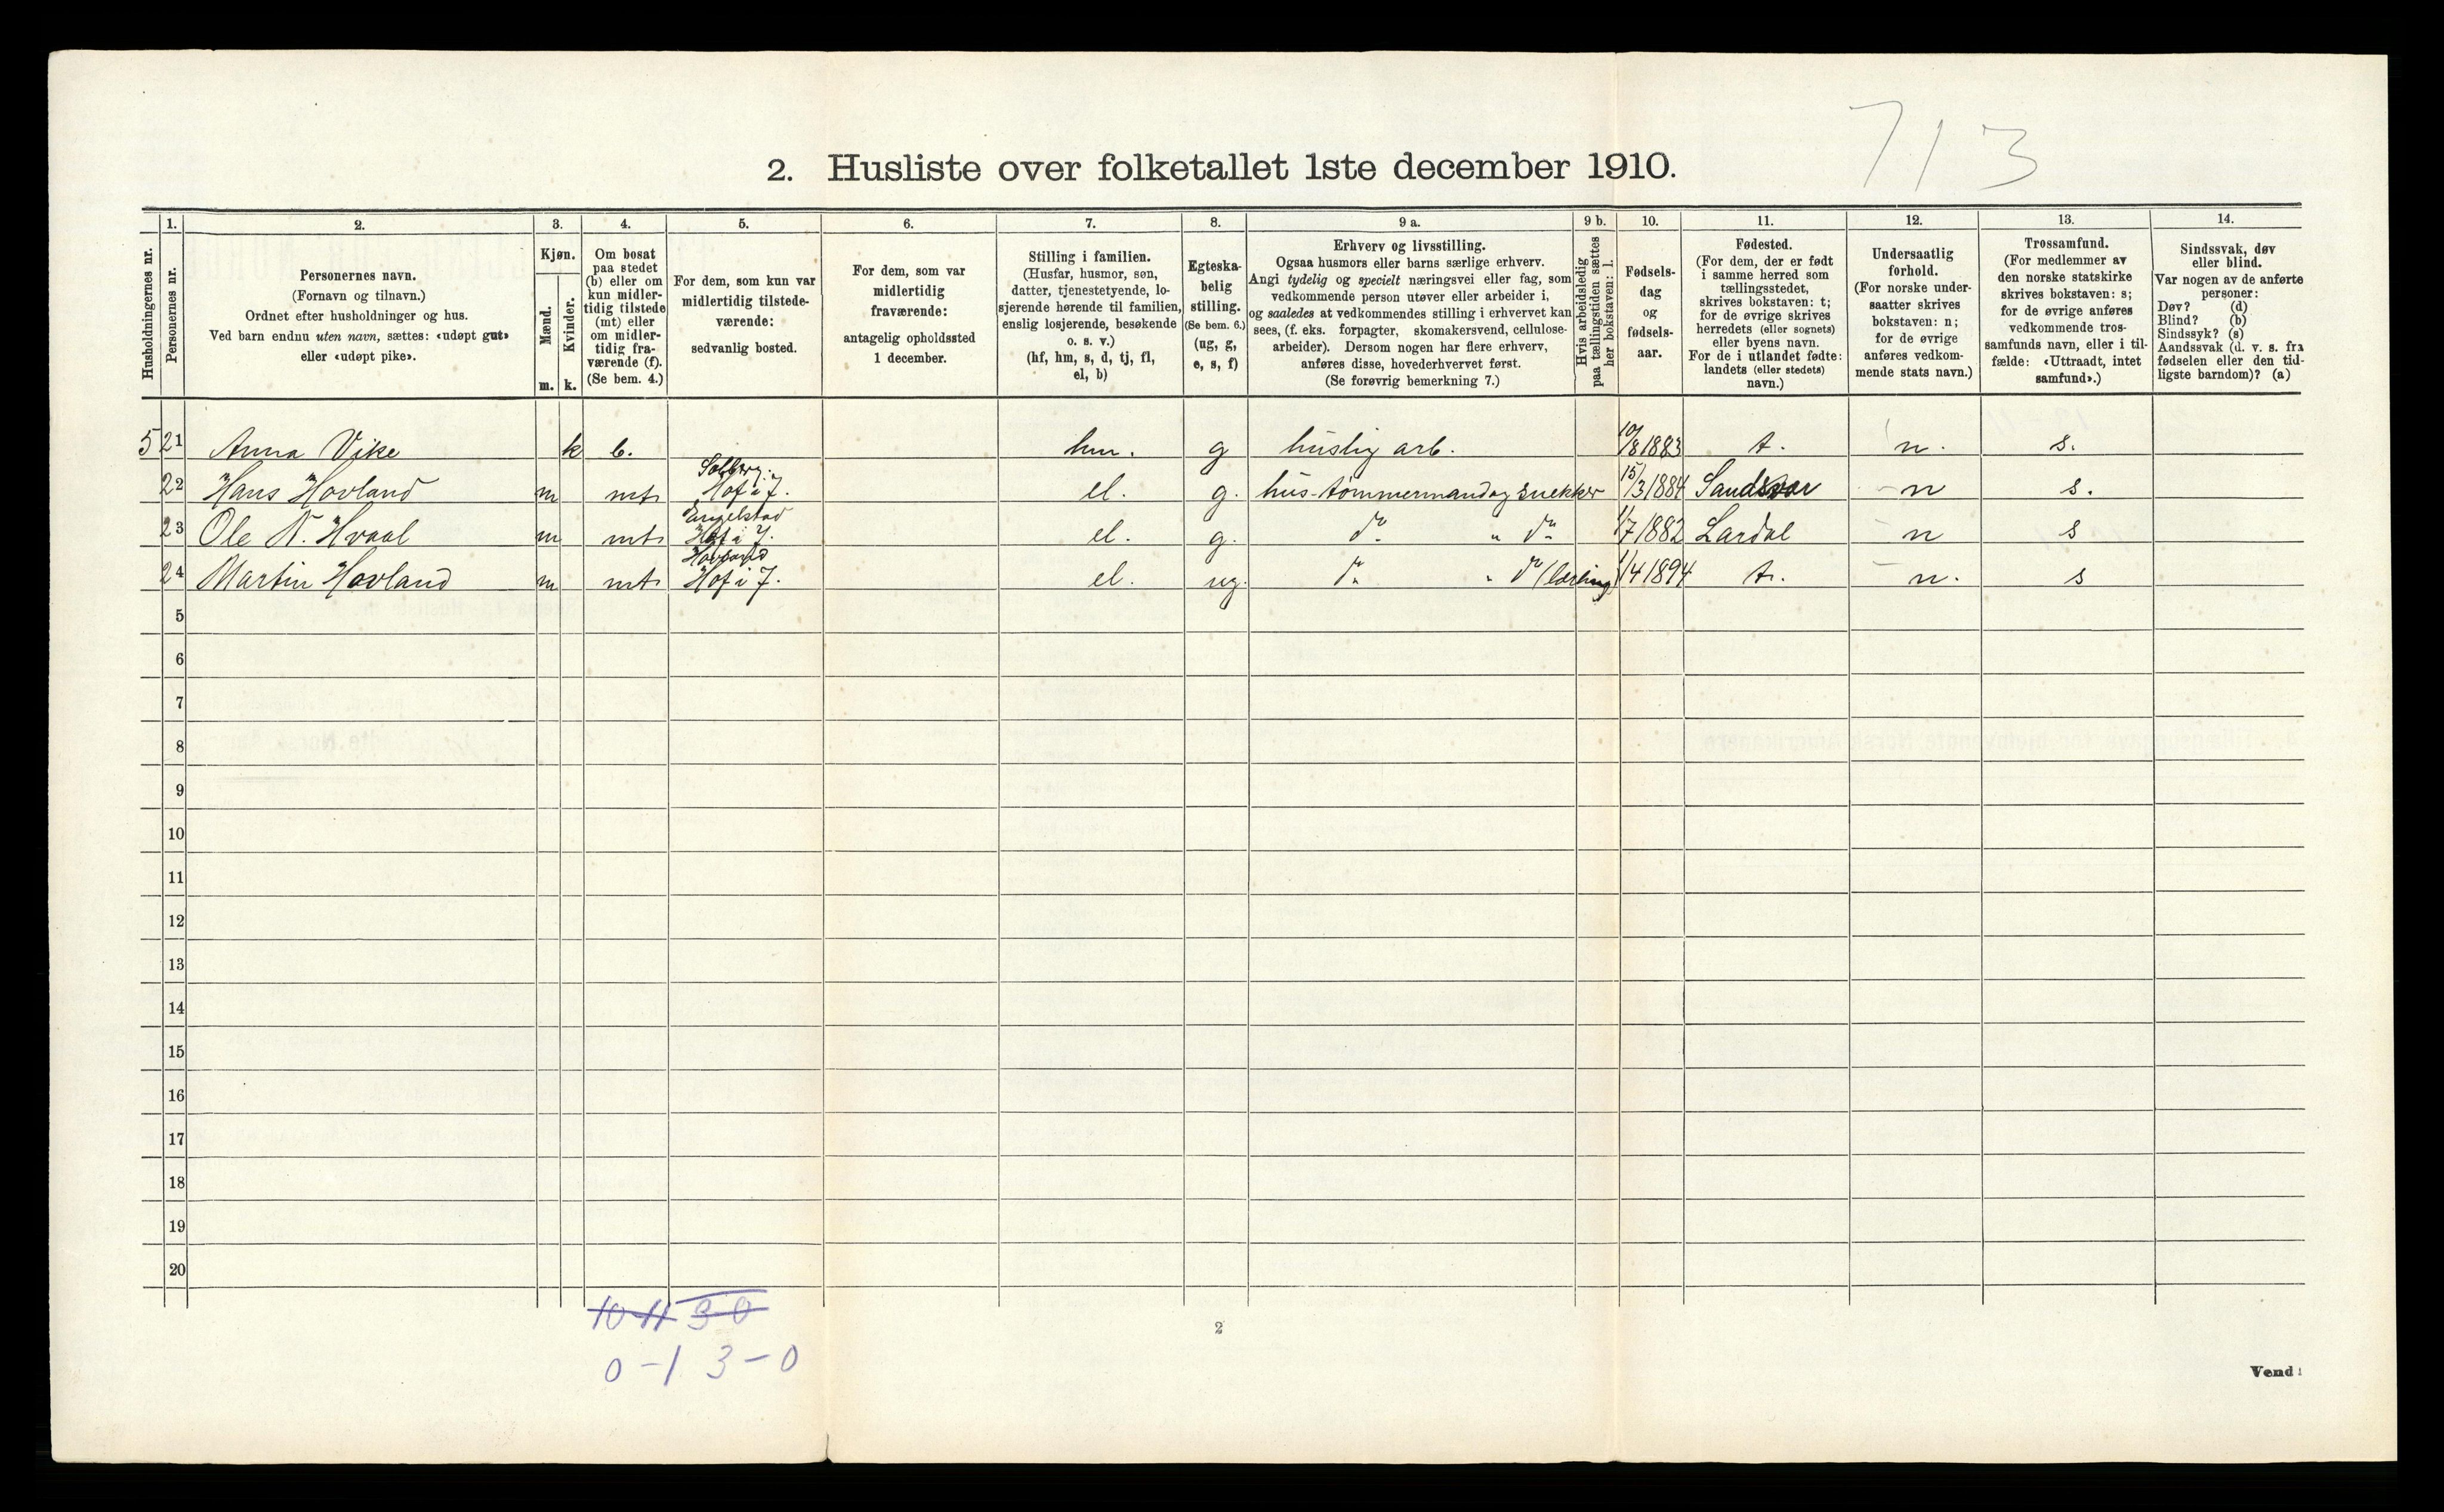 713
2. Husliste over folketallet 1ste december 1910.
Husholdningernes nr.
1.
Personernes nr.
2.
Personernes navn.
(Fornavn og tilnavn.)
Ordnet efter husholdninger og hus.
Ved barn endnu uten navn, sættes: «udøpt gut»
eller «udøpt pike».
3.
Kjøn.
Mænd.
Kvinder.
m. k.
4.
Om bosat
paa stedet
(b) eller om
kun midler-
tidig tilstede
(mt) eller
om midler-
tidig fra-
værende (f).
(Se bem. 4.)
5.
For dem, som kun var
midlertidig tilstede-
værende:
sedvanlig bosted.
6.
For dem, som var
midlertidig
fraværende:
antagelig opholdssted
1 december.
7.
Stilling i familien.
(Husfar, husmor, søn,
datter, tjenestetyende, lo-
sjerende hørende til familien,
enslig losjerende, besøkende
o. s. v.)
(hf, hm, s, d, tj, fl,
el, b)
8.
Egteska-
belig
stilling.
(Se bem. 6.)
(ug, g,
e, s, f)
9 a.
Erhverv og livsstilling.
Ogsaa husmors eller barns særlige erhverv.
Angi tydelig og specielt næringsvei eller fag, som
vedkommende person utøver eller arbeider i,
og saaledes at vedkommendes stilling i erhvervet kan
sees, (f. eks. forpagter, skomakersvend, cellulose-
arbeider). Dersom nogen har flere erhverv,
anføres disse, hovederhvervet først.
(Se forøvrig bemerkning 7.)
9 b.
Hvis arbeidsledig
paa tællingstiden sættes
her bokstaven: l.
10.
Fødsels-
dag
og
fødsels-
aar.
11.
Fødested.
(For dem, der er født
i samme herred som
tællingsstedet,
skrives bokstaven: t;
for de øvrige skrives
herredets (eller sognets)
eller byens navn.
For de i utlandet fødte:
landets (eller stedets)
navn.)
12.
Undersaatlig
forhold.
(For norske under-
saatter skrives
bokstaven: n;
for de øvrige
anføres vedkom-
mende stats navn.)
13.
Trossamfund.
(For medlemmer av
den norske statskirke
skrives bokstaven: s;
for de øvrige anføres
vedkommende tros-
samfunds navn, eller i til-
fælde: «Uttraadt, intet
samfund».)
14.
Sindssvak, døv
eller blind.
Var nogen av de anførte
personer:
Døv? (d)
Blind? (b)
Sindssyk? (s)
Aandssvak (d. v. s. fra
fødselen eller den tid-
ligste barndom)? (a)
5 21 Anna Vike k b. hm. g huslig arb. 10/8 1883 t. n. s.
22 Hans Hovland m mt Solberg. Hof i J. el. g. hus-tømmermand og snekker 15/3 1884 Sandsvær n s.
23 Ole N. Hvaal m mt Engelstad Hof i J. el. g. do " do 1/7 1882 Lardal n s
24 Martin Hovland m mt Hovland Hof i J. el. ug. do " do (lærling) 1/4 1894 t. n. s
5
6
7
8
9
10
11
12
13
14
15
16
17
18
19
20
10-11 3-0
0-1 3-0
2
Vend!